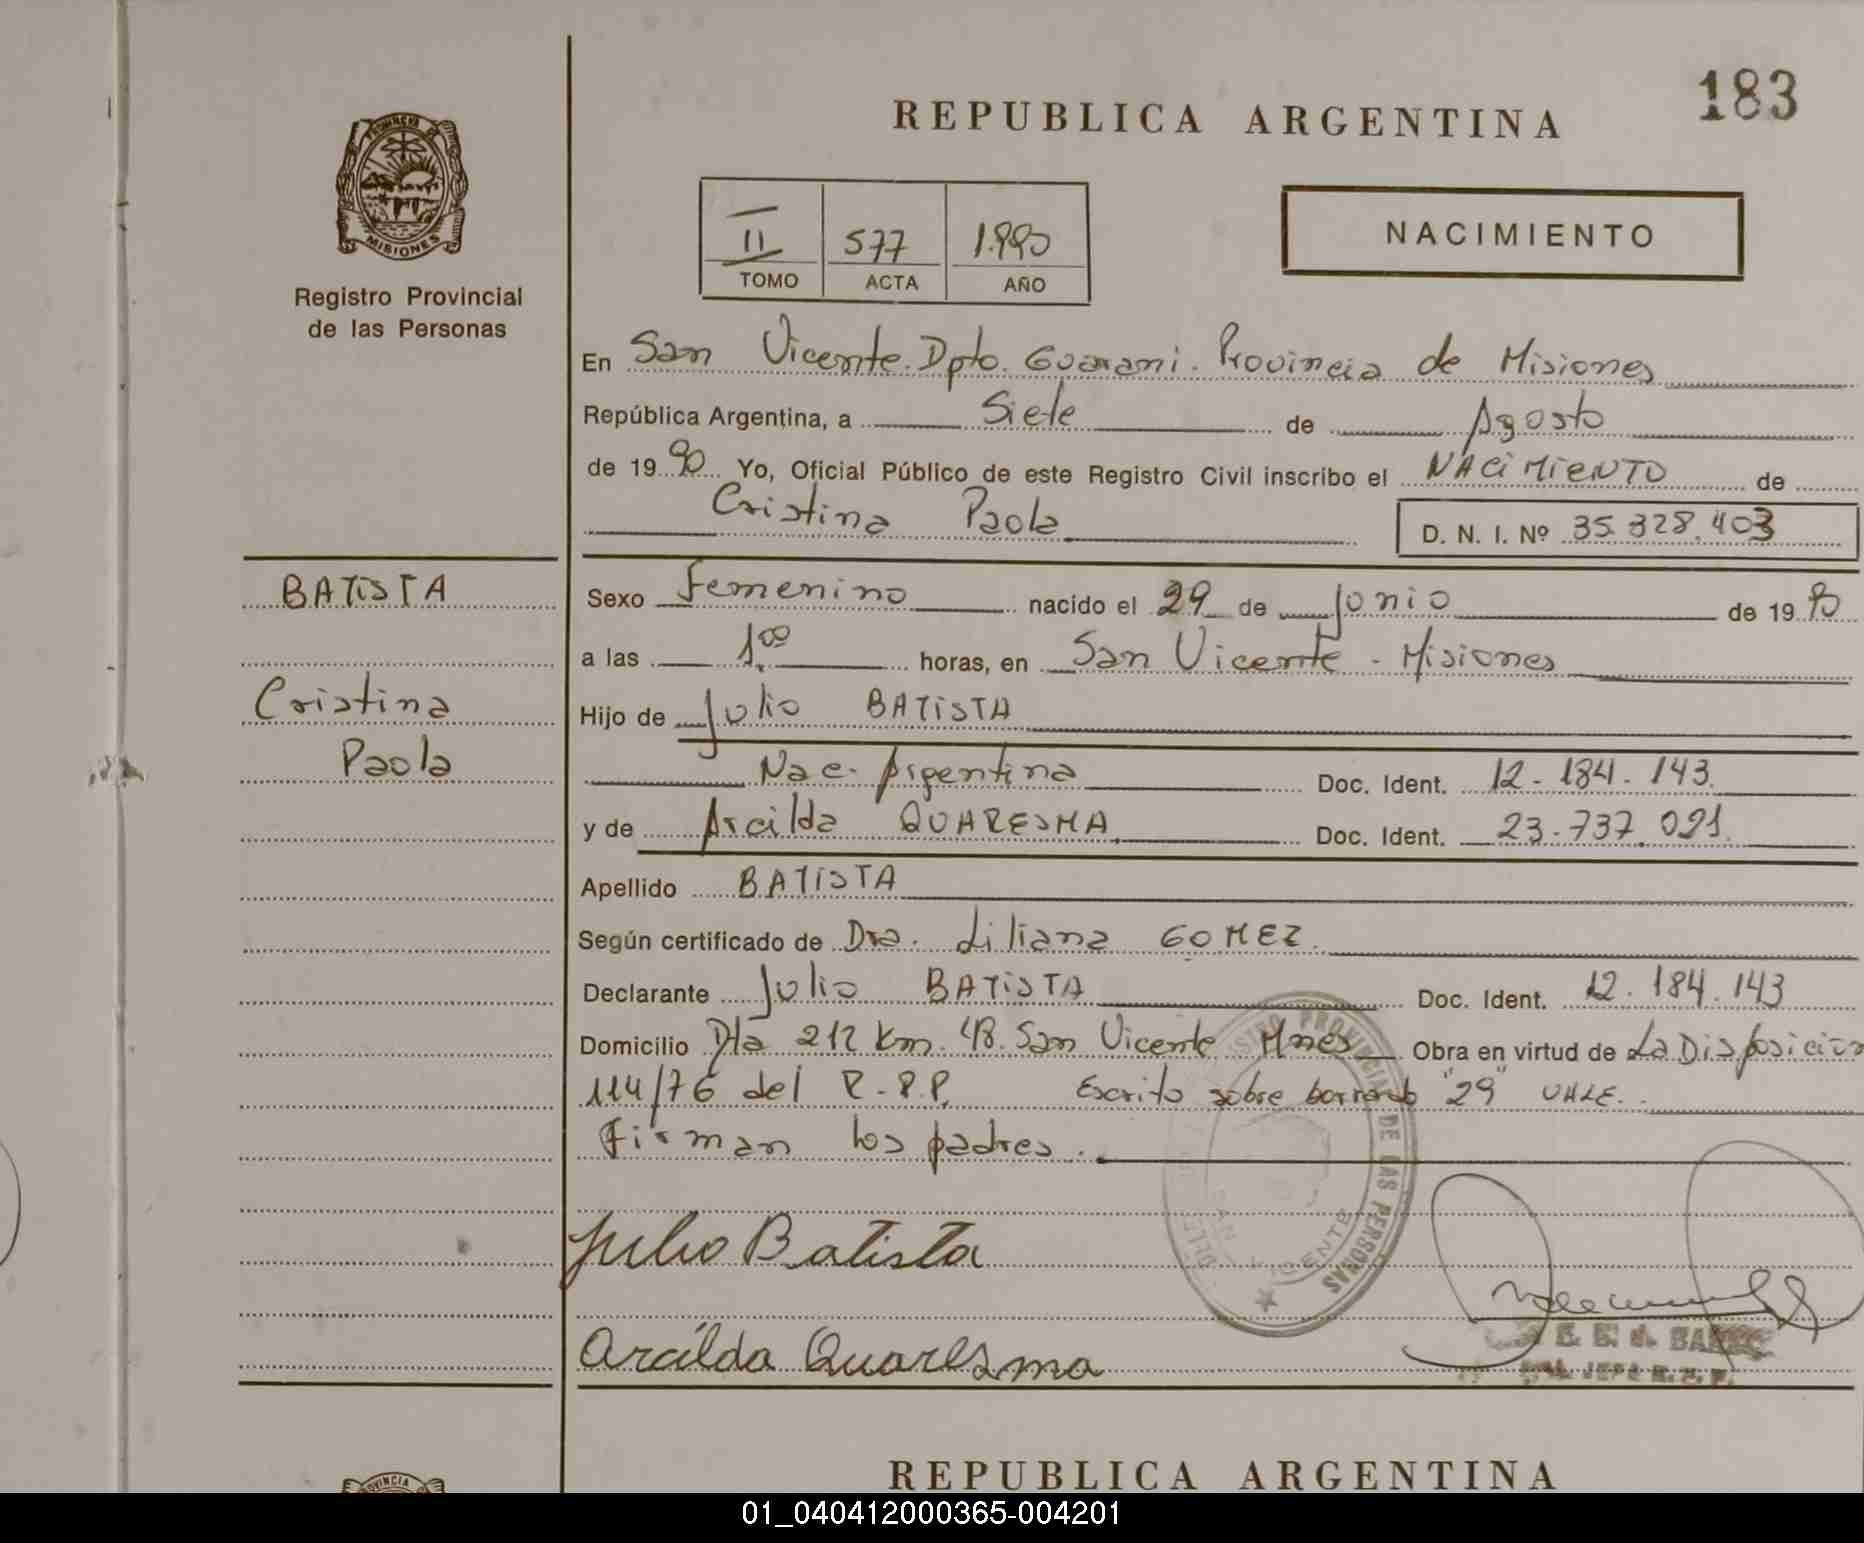 183
REPUBLICA ARGENTINA
PROVINCIA DE
MISIONES
Registro Provincial
de las Personas
II 577 1.990
TOMO ACTA AÑO
NACIMIENTO
En San Vicente. Dpto. Guarani. Provincia de Misiones
República Argentina, a Siete de Agosto
de 19 90 Yo, Oficial Público de este Registro Civil inscribo el NACIMIENTO de
Cristina Paola D. N. I. Nº 35.328.403
BATISTA
Cristina
Paola
Sexo Femenino nacido el 29 de Junio de 19 90
a las 1.00 horas, en San Vicente - Misiones
Hijo de Julio BATISTA
Nac. Argentina Doc. Ident. 12.184.143.
y de Arcilda QUARESMA Doc. Ident. 23.737.021.
Apellido BATISTA
Según certificado de Dra. Liliana GOMEZ.
Declarante Julio BATISTA Doc. Ident. 12.184.143
Domicilio Pta 212 Km. 48. San Vicente Mnes Obra en virtud de La Disposicion
114/76 del R.P.P. Escrito sobre borrado "29" VALE.
Firman los padres.
REGISTRO PROVINCIAL DE LAS PERSONAS
SAN VICENTE
Julio Batista
Arcilda Quaresma
REPUBLICA ARGENTINA
PROVINCIA
01_040412000365-004201